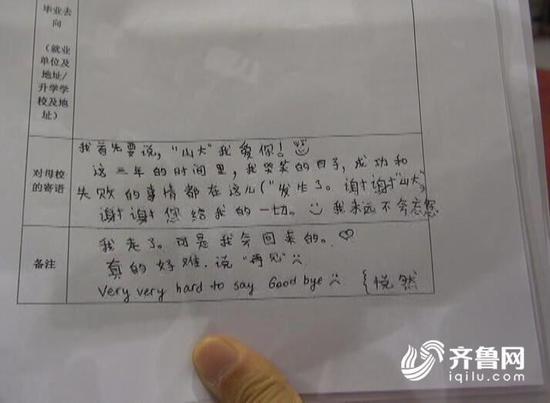 毕业去
向
（就业
单位及
地址/
升学学
校及地
址）
对母校
的寄语
我首先要说，"山大"我爱你！☺
这三年的时间里，我哭笑的日子，成功和
失败的事情都在这儿("发生了。谢谢"山大",
谢谢您给我的一切。☺ 我永远不会忘您
备注
我走了。可是我会回来的。♡
真的好难.说"再见"☹
Very very hard to say Good bye ☹ {悦然
齐鲁网
iqilu.com